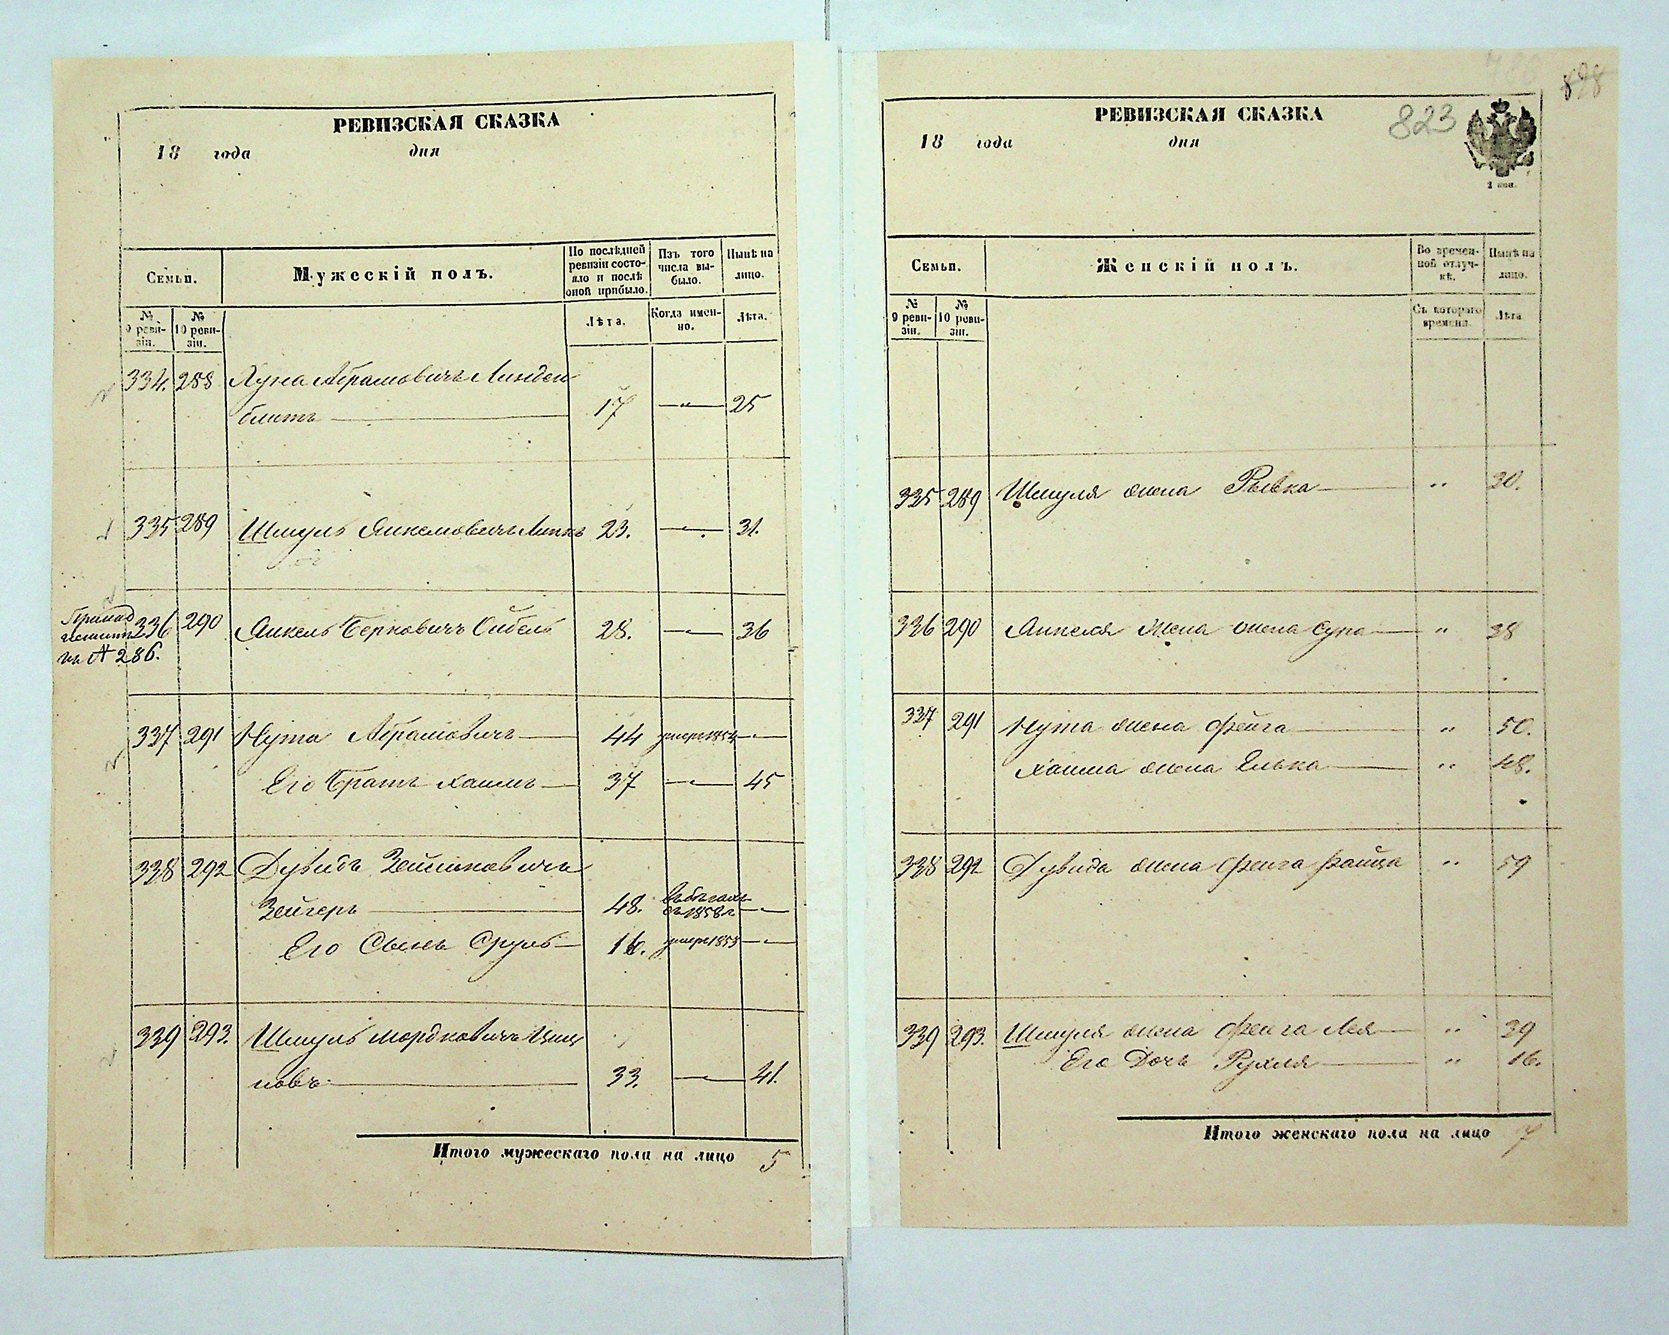 РЕВИЗСКАЯ СКАЗКА
18 года дня
Семьи.
Мужескій полъ.
По послѣдней ревизіи состояло и послѣ оной прибыло.
Изъ того числа выбыло.
Нынѣ на лицо.
№ 9 ревизіи.
№ 10 ревизіи.
Лѣта.
Когда именно.
Лѣта.
334. 288 Абрамовичъ Линден-
блитъ 17 — " — 25
335 289 Шмуль Янкелевичъ 23. — 31.
336 290 Янкель Берковичъ 28. — 36
къ № 286.
337 291 Нута Абрамовичъ — 44 умеръ 1854 —
Его Братъ Хаимъ — 37 — 45
338 292 Дувидъ
Зейгеръ — 48. съ 1858 г. —
Его Сынъ Сруль — 16. умеръ 1853 —
339 293. Шмуль Мордковичъ
новъ — 33. — 41.
Итого мужескаго пола на лицо 5
828
823
РЕВИЗСКАЯ СКАЗКА
18 года дня
Семьи.
Женскій полъ.
Во временной отлучкѣ.
Нынѣ на лицо.
№ 9 ревизіи.
№ 10 ревизіи.
Съ котораго времени.
Лѣта
335 289 Шмуля жена Рывка — " 30.
336 290 Янкеля жена жена Сура — " 38
337 291 Нута жена Фейга — " 50.
Хаима жена Елька — " 48.
338 292 Дувида жена Фейга " 59
339 293. Шмуля жена Фейга Лея — " 39
Его Дочь Рухля — " 16.
Итого женскаго пола на лицо 7